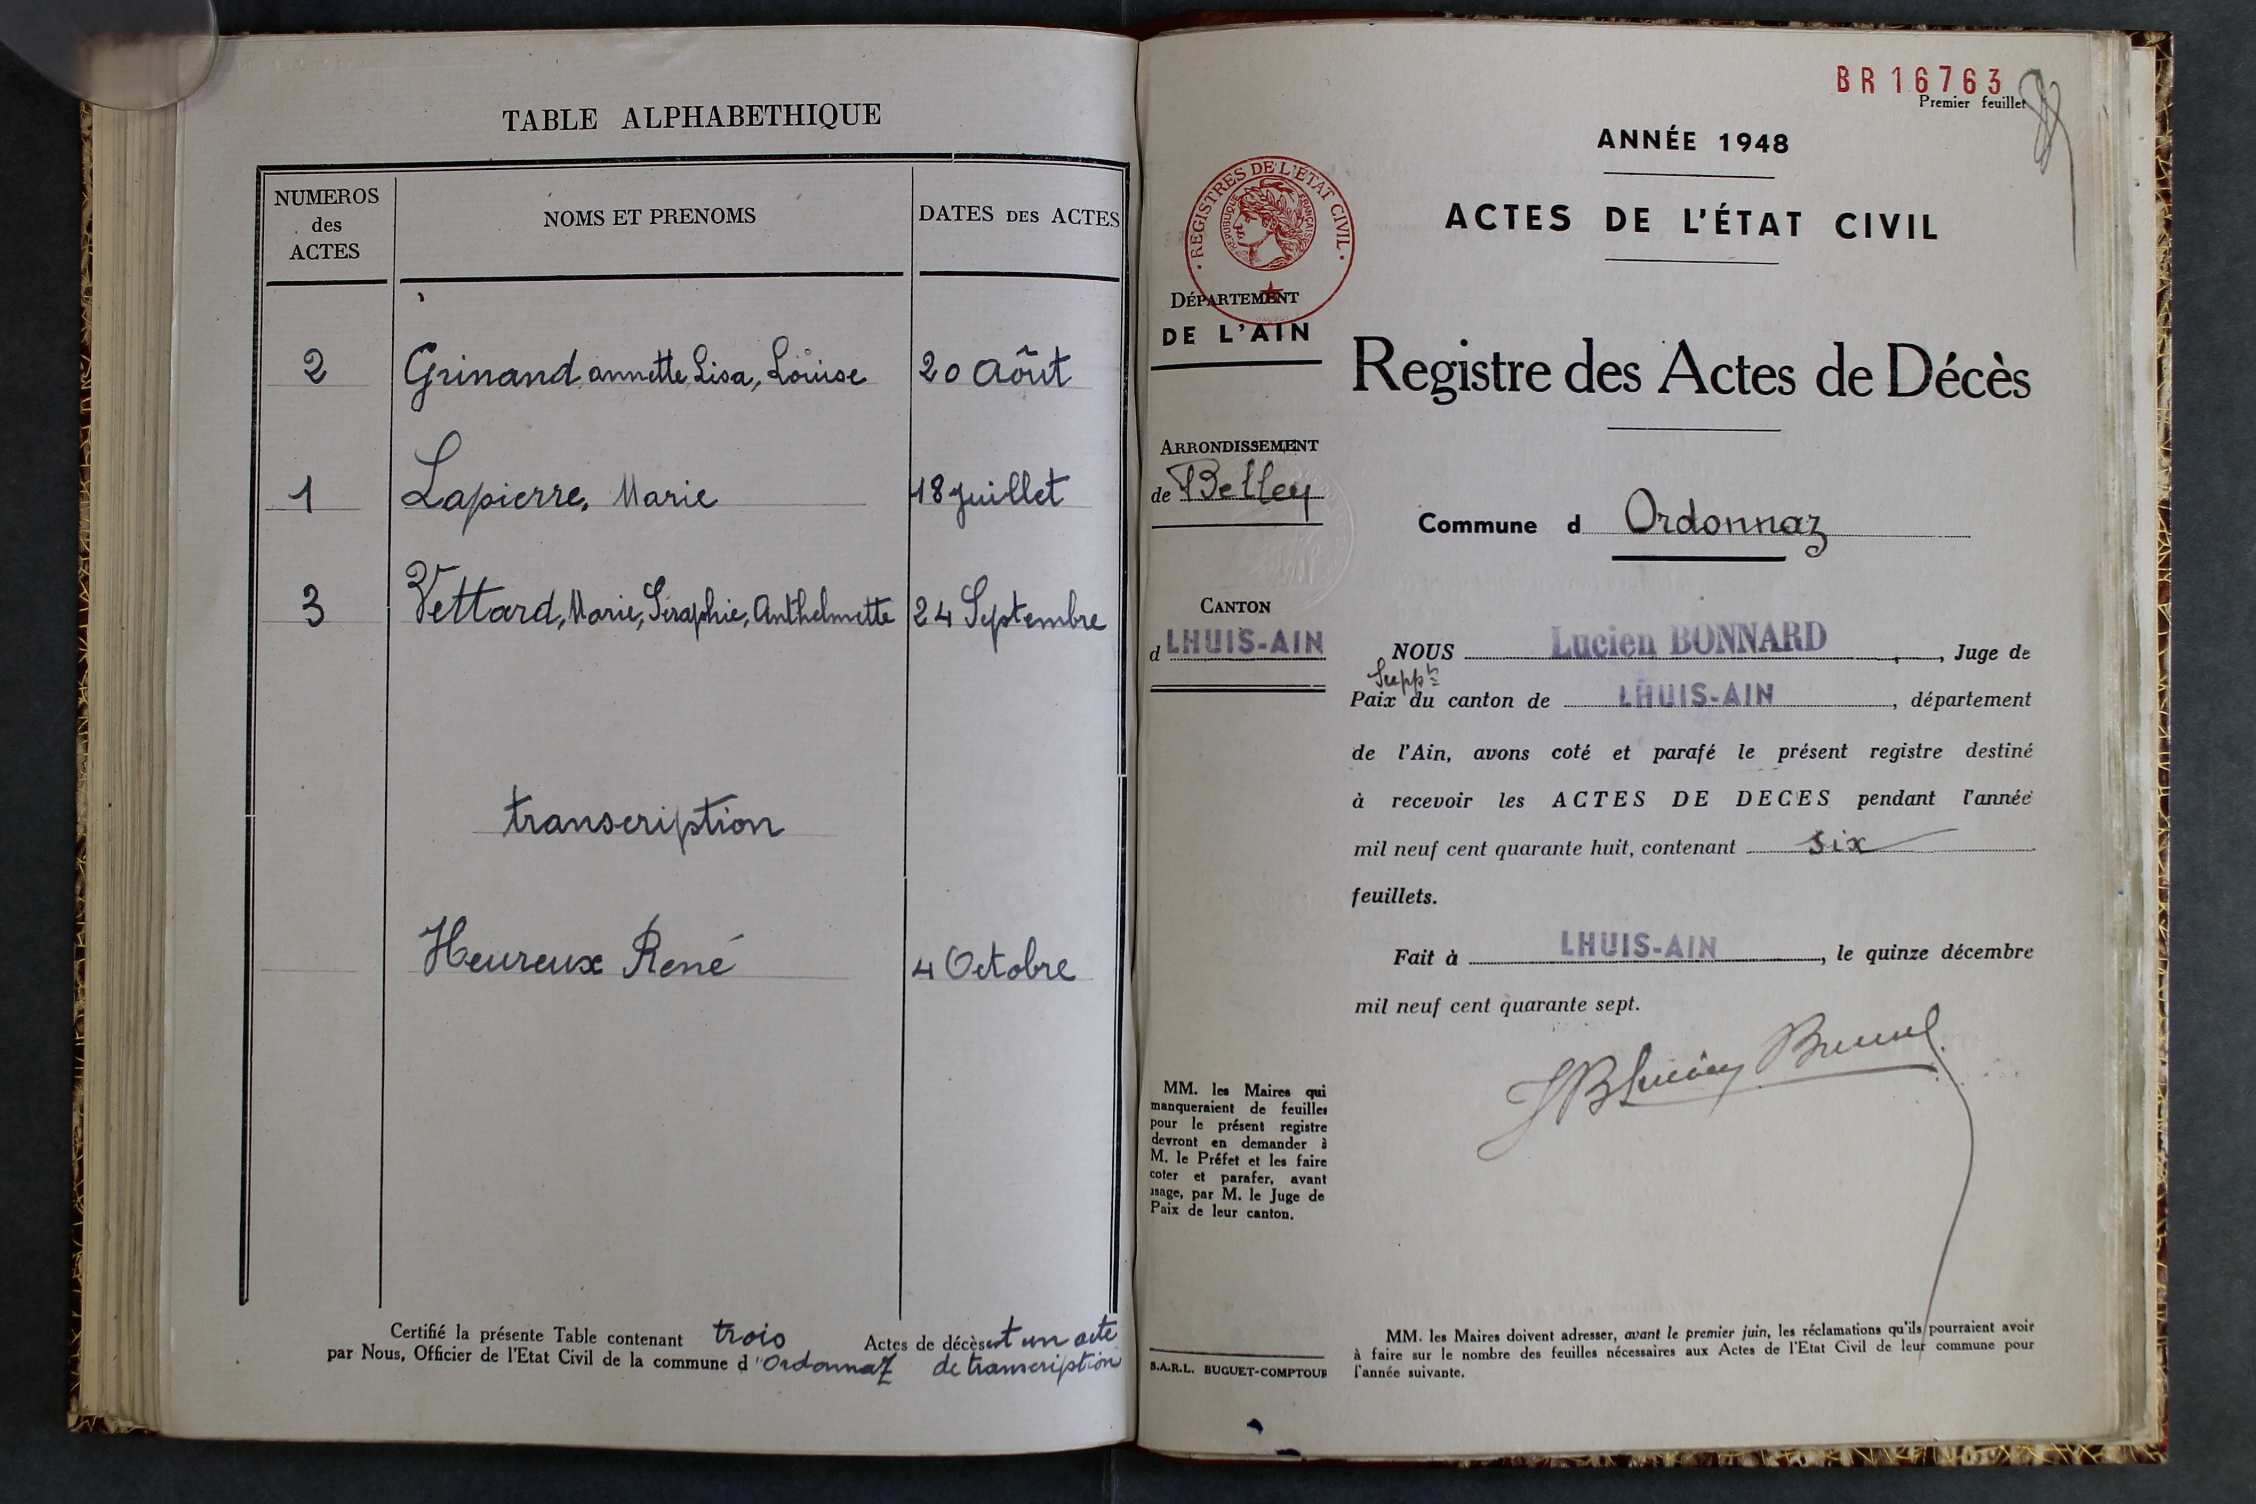 TABLE ALPHABETHIQUE
NUMEROS
des
ACTES
NOMS ET PRENOMS
DATES DES ACTES
2 Grinand annette, Lisa, Louise 20 Août
1 Lapierre, Marie 18 juillet
3 Vettard, Marie, Séraphie, Anthelmette 24 Septembre
transcription
Heureux René 4 Octobre
Certifié la présente Table contenant trois Actes de décès et un acte
par Nous, Officier de l'Etat Civil de la commune d'Ordonnaz de transcription
BR16763
Premier feuillet
ANNÉE 1948
ACTES DE L'ÉTAT CIVIL
REGISTRES DE L'ÉTAT CIVIL
REPUBLIQUE FRANÇAISE
DÉPARTEMENT
DE L'AIN
Registre des Actes de Décès
ARRONDISSEMENT
de Belley
Commune d Ordonnaz
CANTON
d LHUIS-AIN
NOUS Lucien BONNARD, Juge de
Suppt
Paix du canton de LHUIS-AIN, département
de l'Ain, avons coté et parafé le présent registre destiné
à recevoir les ACTES DE DECES pendant l'année
mil neuf cent quarante huit, contenant six
feuillets.
Fait à LHUIS-AIN, le quinze décembre
mil neuf cent quarante sept.
MM. les Maires qui
manqueraient de feuilles
pour le présent registre
devront en demander à
M. le Préfet et les faire
coter et parafer, avant
usage, par M. le Juge de
Paix de leur canton.
S.A.R.L. BUGUET-COMPTOUR
MM. les Maires doivent adresser, avant le premier juin, les réclamations qu'ils pourraient avoir
à faire sur le nombre des feuilles nécessaires aux Actes de l'Etat Civil de leur commune pour
l'année suivante.